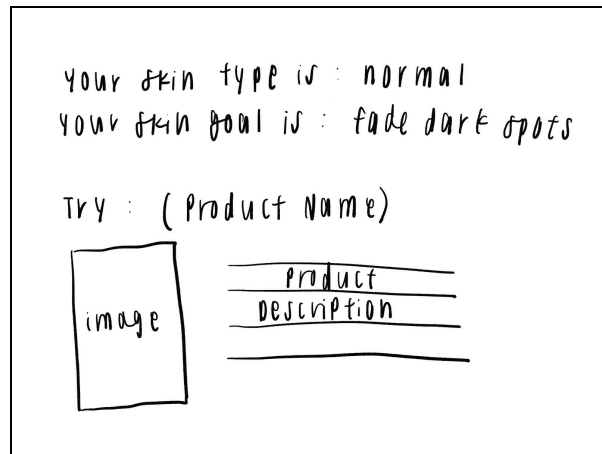 your skin type is : normal
your skin goal is : fade dark spots
Try : (Product Name)
image
Product
Description